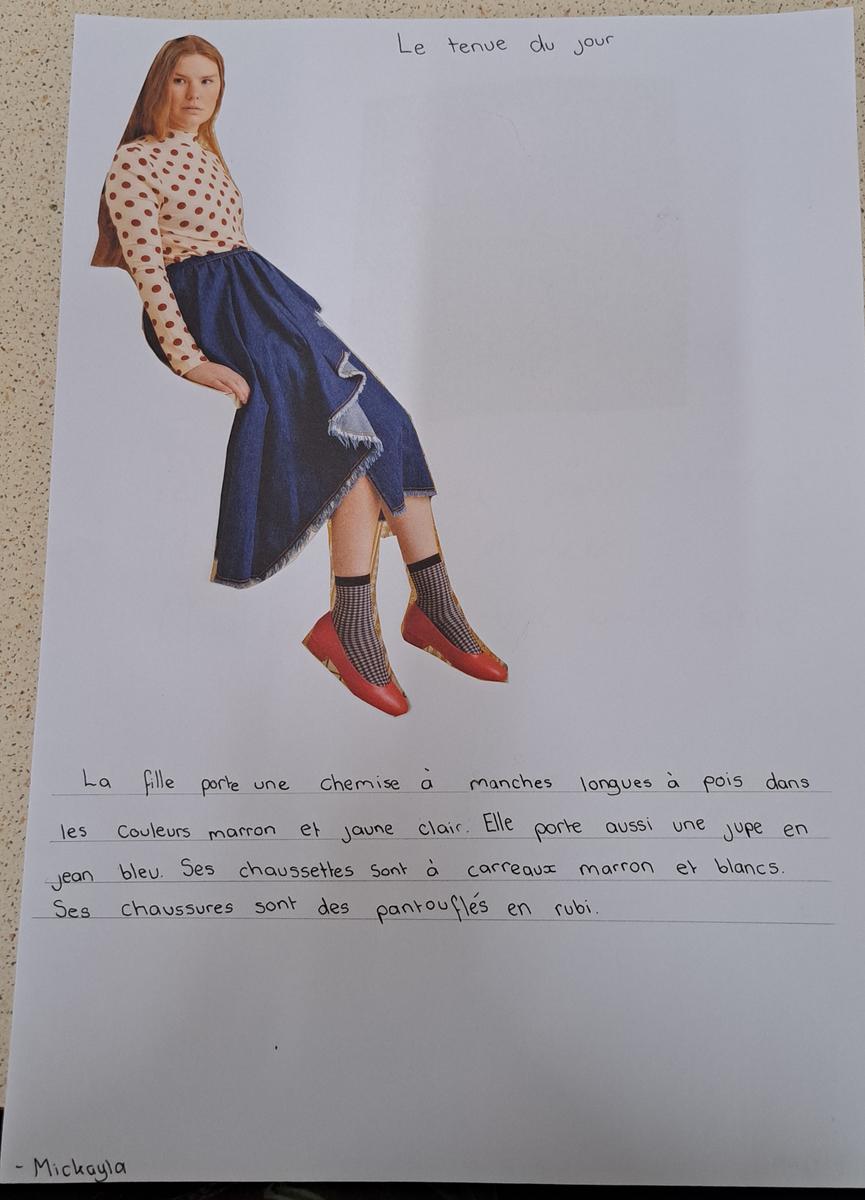 Le tenue du jour
La fille porte une chemise à manches longues à pois dans
les couleurs marron et jaune clair. Elle porte aussi une jupe en
jean bleu. Ses chaussettes sont à carreaux marron et blancs.
Ses chaussures sont des pantouflés en rubi.
- Mickayla